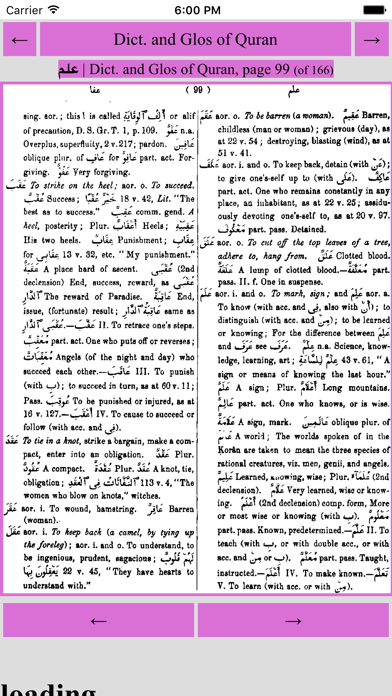 Carrier 6:00 PM
← Dict. and Glos of Quran →
علم | Dict. and Glos of Quran, page 99 (of 166)
عفا ( 99 ) علم
sing. aor.; this ا is called أَلِفُ ٱلْوِقَايَةِ or alif
of precaution, D. S. Gr. T. 1, p. 109. عَفْوٌ n.a.
Overplus, superfluity, 2 v. 217; pardon. عَافِينَ
oblique plur. of عَافٍ for عَافِيٌ part. act. For-
giving. عَفُوٌّ Very forgiving.
عَقَبَ To strike on the heel; aor. o. To succeed.
عُقْبٌ Success; خَيْرٌ عُقْبًا 18 v. 42, Lit. "The
best as to success." عَقِبٌ comm. gend. A
heel, posterity; Plur. أَعْقَابٌ Heels;
His two heels. عِقَابٌ Punishment;
for عِقَابِي 13 v. 32, etc. "My punishment."
عَقَبَةٌ A place hard of ascent. عُقْبَى (2nd
declension) End, success, reward, as
The reward of Paradise. عَاقِبَةٌ End,
issue, (fortunate) result; same as
II. To retrace one's steps.
مُعَقِّبٌ part. act. One who puts off or reverses;
مُعَقِّبَاتٌ Angels (of the night and day) who
succeed each other.—عَاقَبَ III. To punish
(with بِ); to succeed in turn, as at 60 v. 11;
Pass. عُوقِبَ To be punished or injured, as at
16 v. 127.—أَعْقَبَ IV. To cause to succeed or
follow (with acc. and فِي).
عَقَدَ To tie in a knot, strike a bargain, make a com-
pact, enter into an obligation. عَقْدٌ Plur.
عُقُودٌ A compact. عُقْدَةٌ Plur. عُقَدٌ A knot, tie,
obligation; النَّفَّاثَاتُ فِي الْعُقَدِ 113 v. 4, "The
women who blow on knots," witches.
عَقَرَ aor. i. To wound, hamstring. عَاقِرٌ Barren
(woman).
عَقَلَ aor. i. To keep back (a camel, by tying up
the foreleg); aor. i. and o. To understand, to
be ingenious, prudent, sagacious; لَهُمْ قُلُوبٌ
يَعْقِلُونَ بِهَا 22 v. 45, "They have hearts to
understand with."
عَقَمَ aor. o. To be barren (a woman). عَقِيمٌ Barren,
childless (man or woman); grievous (day), as
at 22 v. 54; destroying, blasting (wind), as at
51 v. 41.
عَكَفَ aor. i. and o. To keep back, detain (with عَنْ);
to give one's-self up to (with عَلَى). عَاكِفٌ
part. act. One who remains constantly in any
place, an inhabitant, as at 22 v. 25; assidu-
ously devoting one's-self to, as at 20 v. 97.
مَعْكُوفٌ part. pass. Detained.
عَلَقَ aor. o. To cut off the top leaves of a tree,
adhere to, hang from. عَلَقٌ Clotted blood.
عَلَقَةٌ A lump of clotted blood.—مُعَلَّقَةٌ part.
pass. II. f. One in suspense.
عَلَمَ aor. i. and o. To mark, sign; and عَلِمَ aor. a.
To know (with acc. and فِي, also with أَنَّ); to
distinguish (with acc. and مِنْ); to be learned
or knowing; For the difference between عَلِمَ
and عَرَفَ see عَرَفَ. عِلْمٌ n.a. Science, know-
ledge, learning, art; عِلْمٌ لِلسَّاعَةِ 43 v. 61, "A
sign or means of knowing the last hour."
عَلَمٌ A sign; Plur. أَعْلَامٌ Long mountains.
عَالِمٌ part. act. One who knows, or is wise.
عَلَامَةٌ A sign, mark. عَالَمِينَ oblique plur. of
عَالَمٌ A world; The worlds spoken of in the
Ḳorân are taken to mean the three species of
rational creatures, viz. men, genii, and angels.
عَلِيمٌ Learned, knowing, wise; Plur. عُلَمَآءُ (2nd
declension). عَلَّامٌ Very learned, wise or know-
ing. أَعْلَمُ (2nd declension) comp. form, More
or most wise or knowing (with بِ). مَعْلُومٌ
part. pass. Known, predetermined.—عَلَّمَ II. To
teach (with بِ, or with double acc., or with
acc. and مِنْ or بِ). مُعَلَّمٌ part. pass. Taught,
instructed.—أَعْلَمَ IV. To make known.—تَعَلَّمَ
V. To learn (with acc. or with مِنْ).
← →
loading